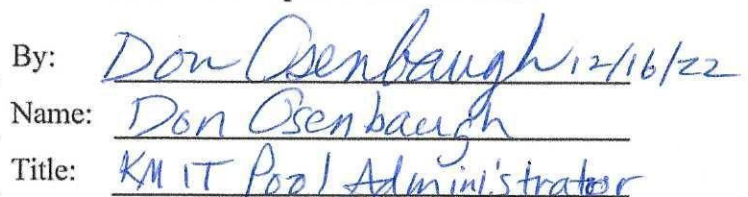 By: Don Osenbaugh 12/16/22
Name: Don Osenbaugh
Title: KMIT Pool Administrator